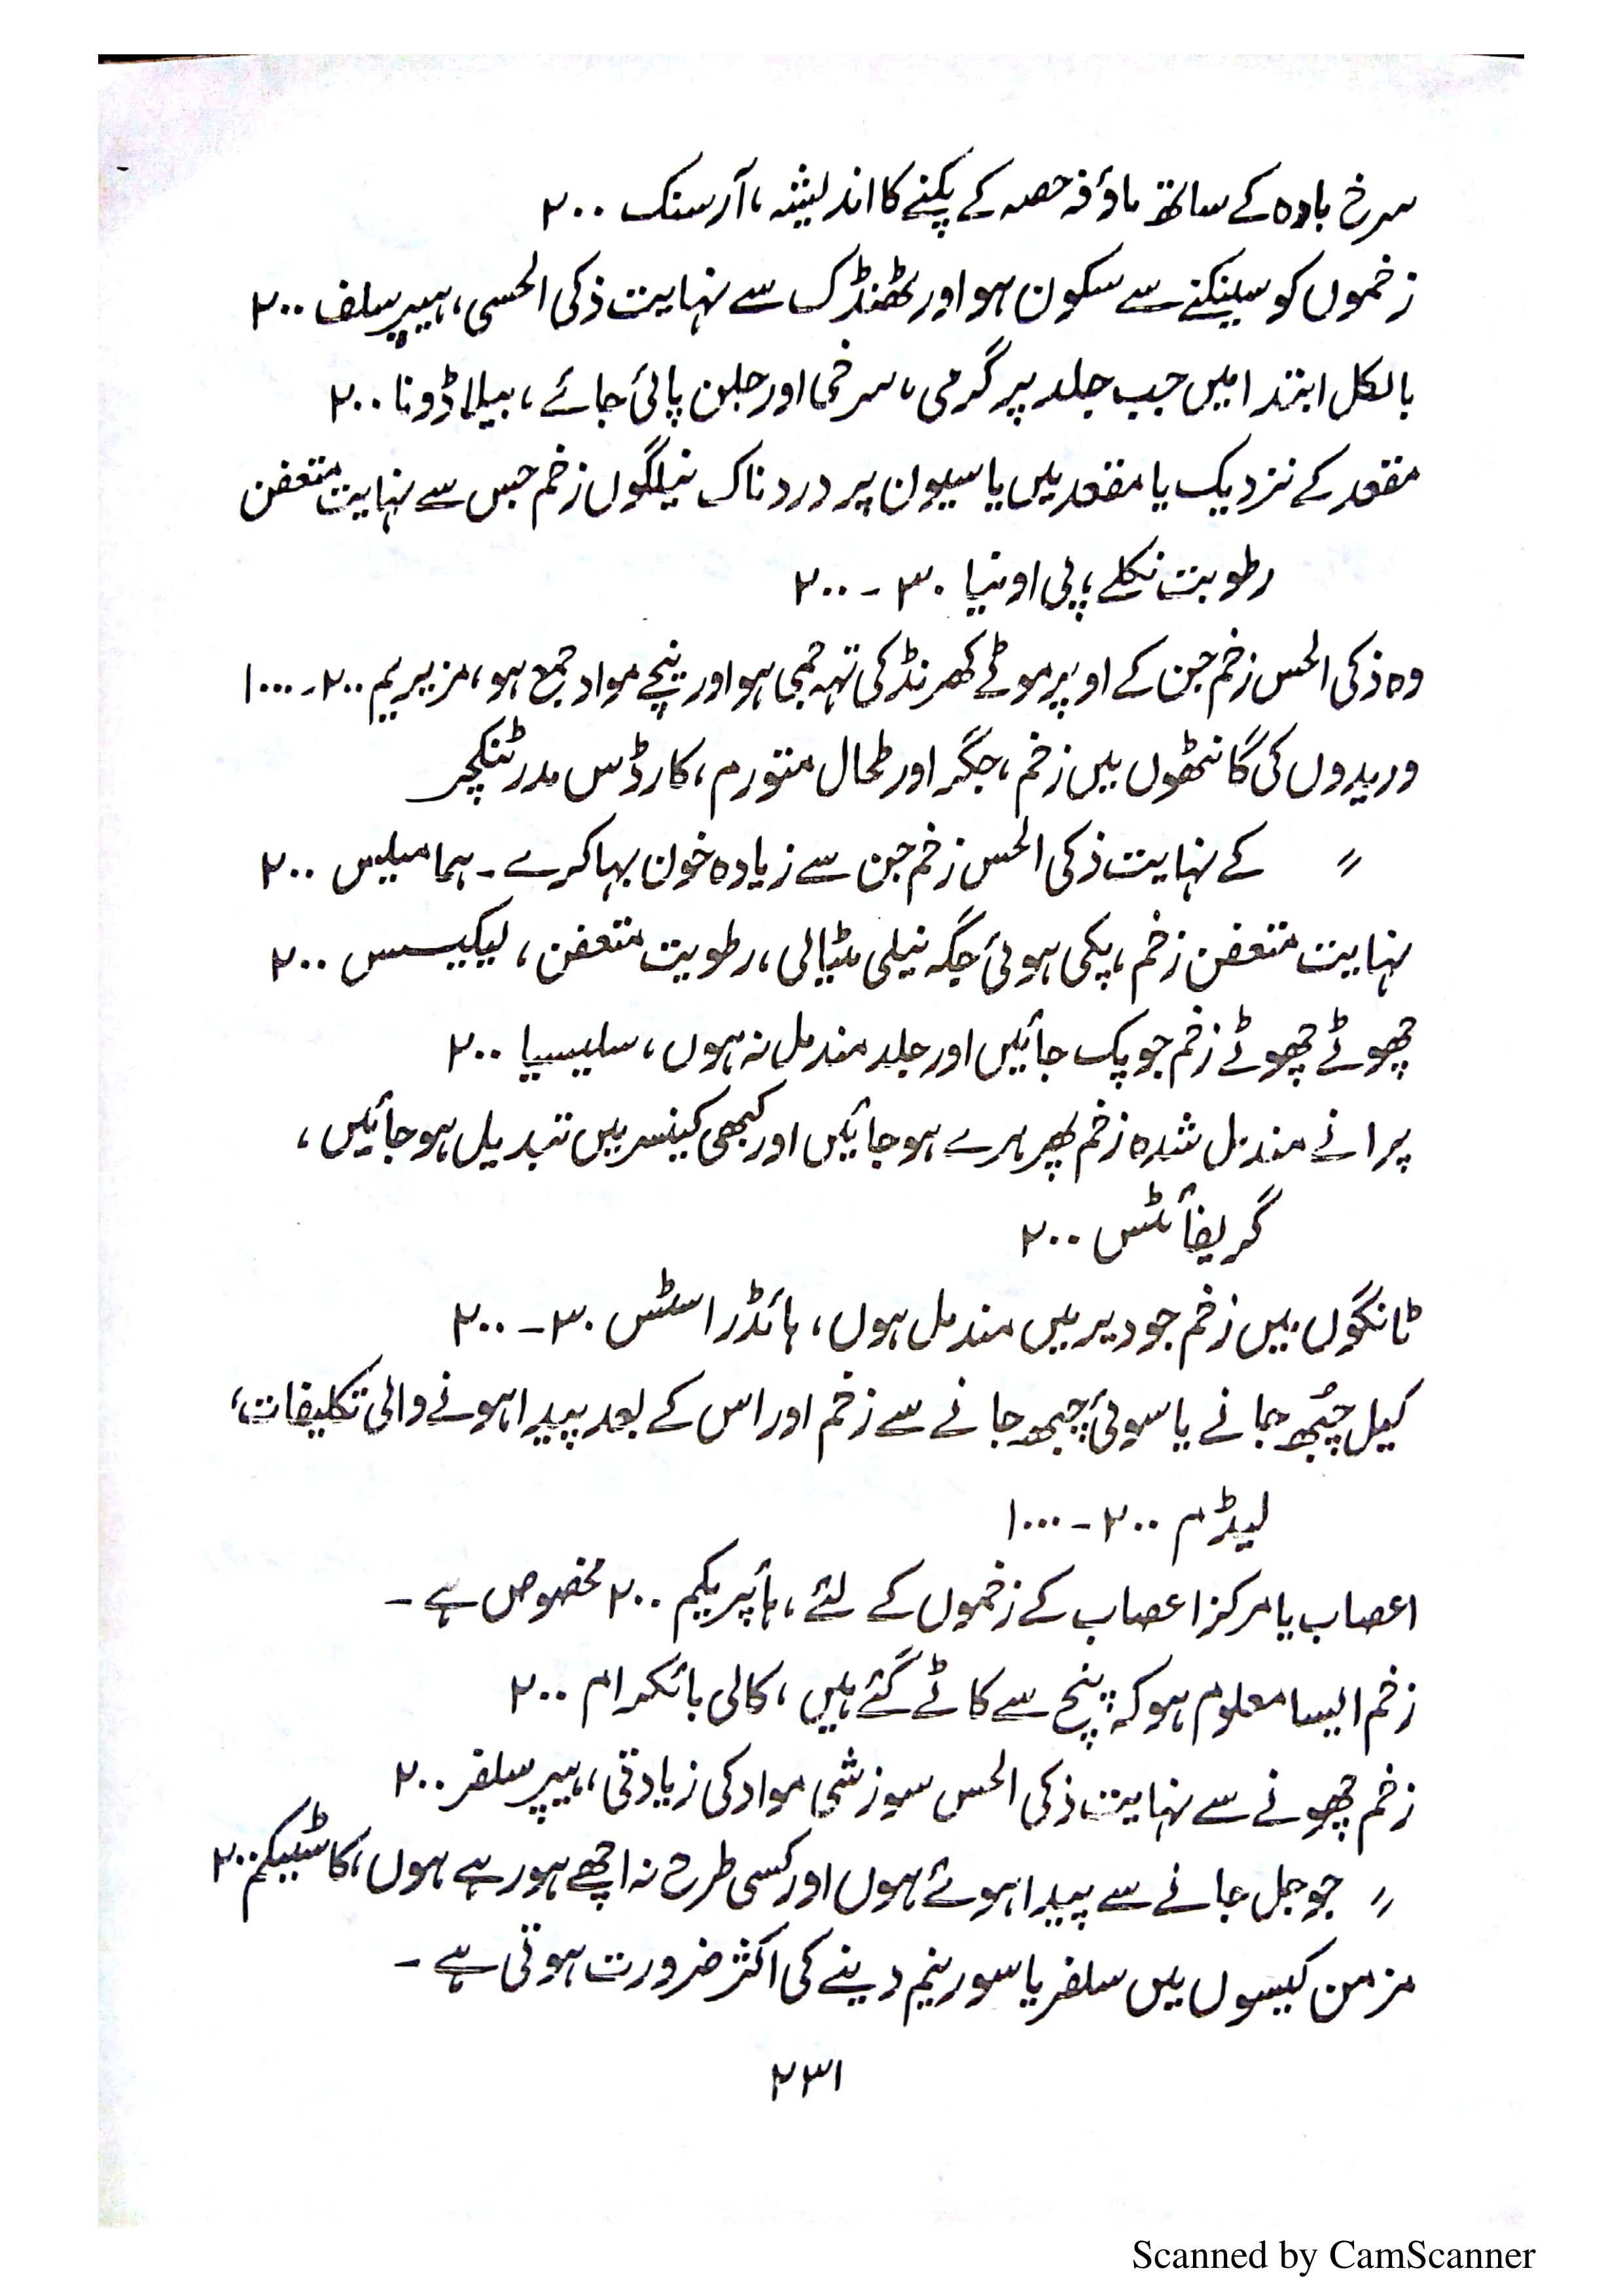 سرخ بادہ کے ساتھ ماؤفہ حصہ کے پکنے کا اندیشہ، آرسنک ۲۰۰
زخموں کو سینکنے سے سکون ہو اور ٹھنڈک سے نہایت ذکی الحسی، ہیپر سلف ۲۰۰
بالکل ابتدا میں جب جلد پر گرمی، سرخی اور جلن پائی جائے، بیلاڈونا ۲۰۰
مقعد کے نزدیک یا مقعد میں یا سیون پر دردناک نیلگوں زخم جس سے نہایت متعفن
رطوبت نکلے، پی اونیا ۳۰ - ۲۰۰
وہ ذکی الحس زخم جن کے اوپر موٹے کھرنڈ کی تہہ جمی ہو اور نیچے مواد جمع ہو، مزیریم ۲۰۰ - ۱۰۰۰
وریدوں کی گانٹھوں میں زخم، جگر اور طحال متورم، کارڈس مدر ٹنکچر
〃 کے نہایت ذکی الحس زخم جن سے زیادہ خون بہا کرے - ہمامیلیس ۲۰۰
نہایت متعفن زخم، پکی ہوئی جگہ نیلی مٹیالی، رطوبت متعفن، لیکیسس ۲۰۰
چھوٹے چھوٹے زخم جو پک جائیں اور جلد مندمل نہ ہوں، سلیسیا ۲۰۰
پرانے مندمل شدہ زخم پھر ہرے ہو جائیں اور کبھی کینسر میں تبدیل ہو جائیں،
گریفائٹس ۲۰۰
ٹانگوں میں زخم جو دیر میں مندمل ہوں، ہائڈراسٹس ۳۰ - ۲۰۰
کیل چبھ جانے یا سوئی چبھ جانے سے زخم اور اس کے بعد پیدا ہونے والی تکلیفات،
لیڈم ۲۰۰ - ۱۰۰۰
اعصاب یا مرکز اعصاب کے زخموں کے لئے، ہائپریکم ۲۰۰ مخصوص ہے -
زخم ایسا معلوم ہو کہ پنچ سے کاٹے گئے ہیں، کالی بائکرام ۲۰۰
زخم چھونے سے نہایت ذکی الحس سوزشی مواد کی زیادتی، ہیپر سلفر ۲۰۰
〃 جو جل جانے سے پیدا ہوئے ہوں اور کسی طرح نہ اچھے ہو رہے ہوں، کاسٹیکم ۲۰۰
مزمن کیسوں میں سلفر یا سورینم دینے کی اکثر ضرورت ہوتی ہے -
۲۳۱
Scanned by CamScanner